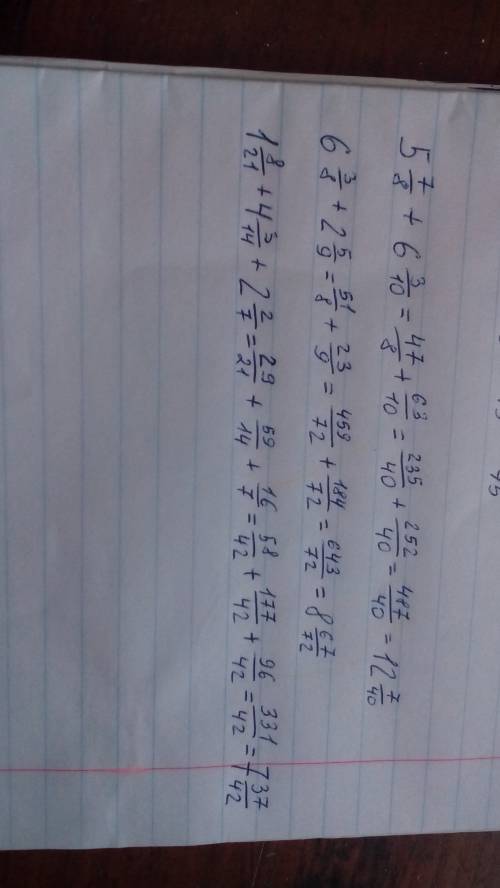 5 7/8 + 6 3/10 = 47/8 + 63/10 = 235/40 + 252/40 = 487/40 = 12 7/40
6 3/8 + 2 5/9 = 51/8 + 23/9 = 459/72 + 184/72 = 643/72 = 8 67/72
1 8/21 + 4 3/14 + 2 2/7 = 29/21 + 59/14 + 16/7 = 58/42 + 177/42 + 96/42 = 331/42 = 7 37/42